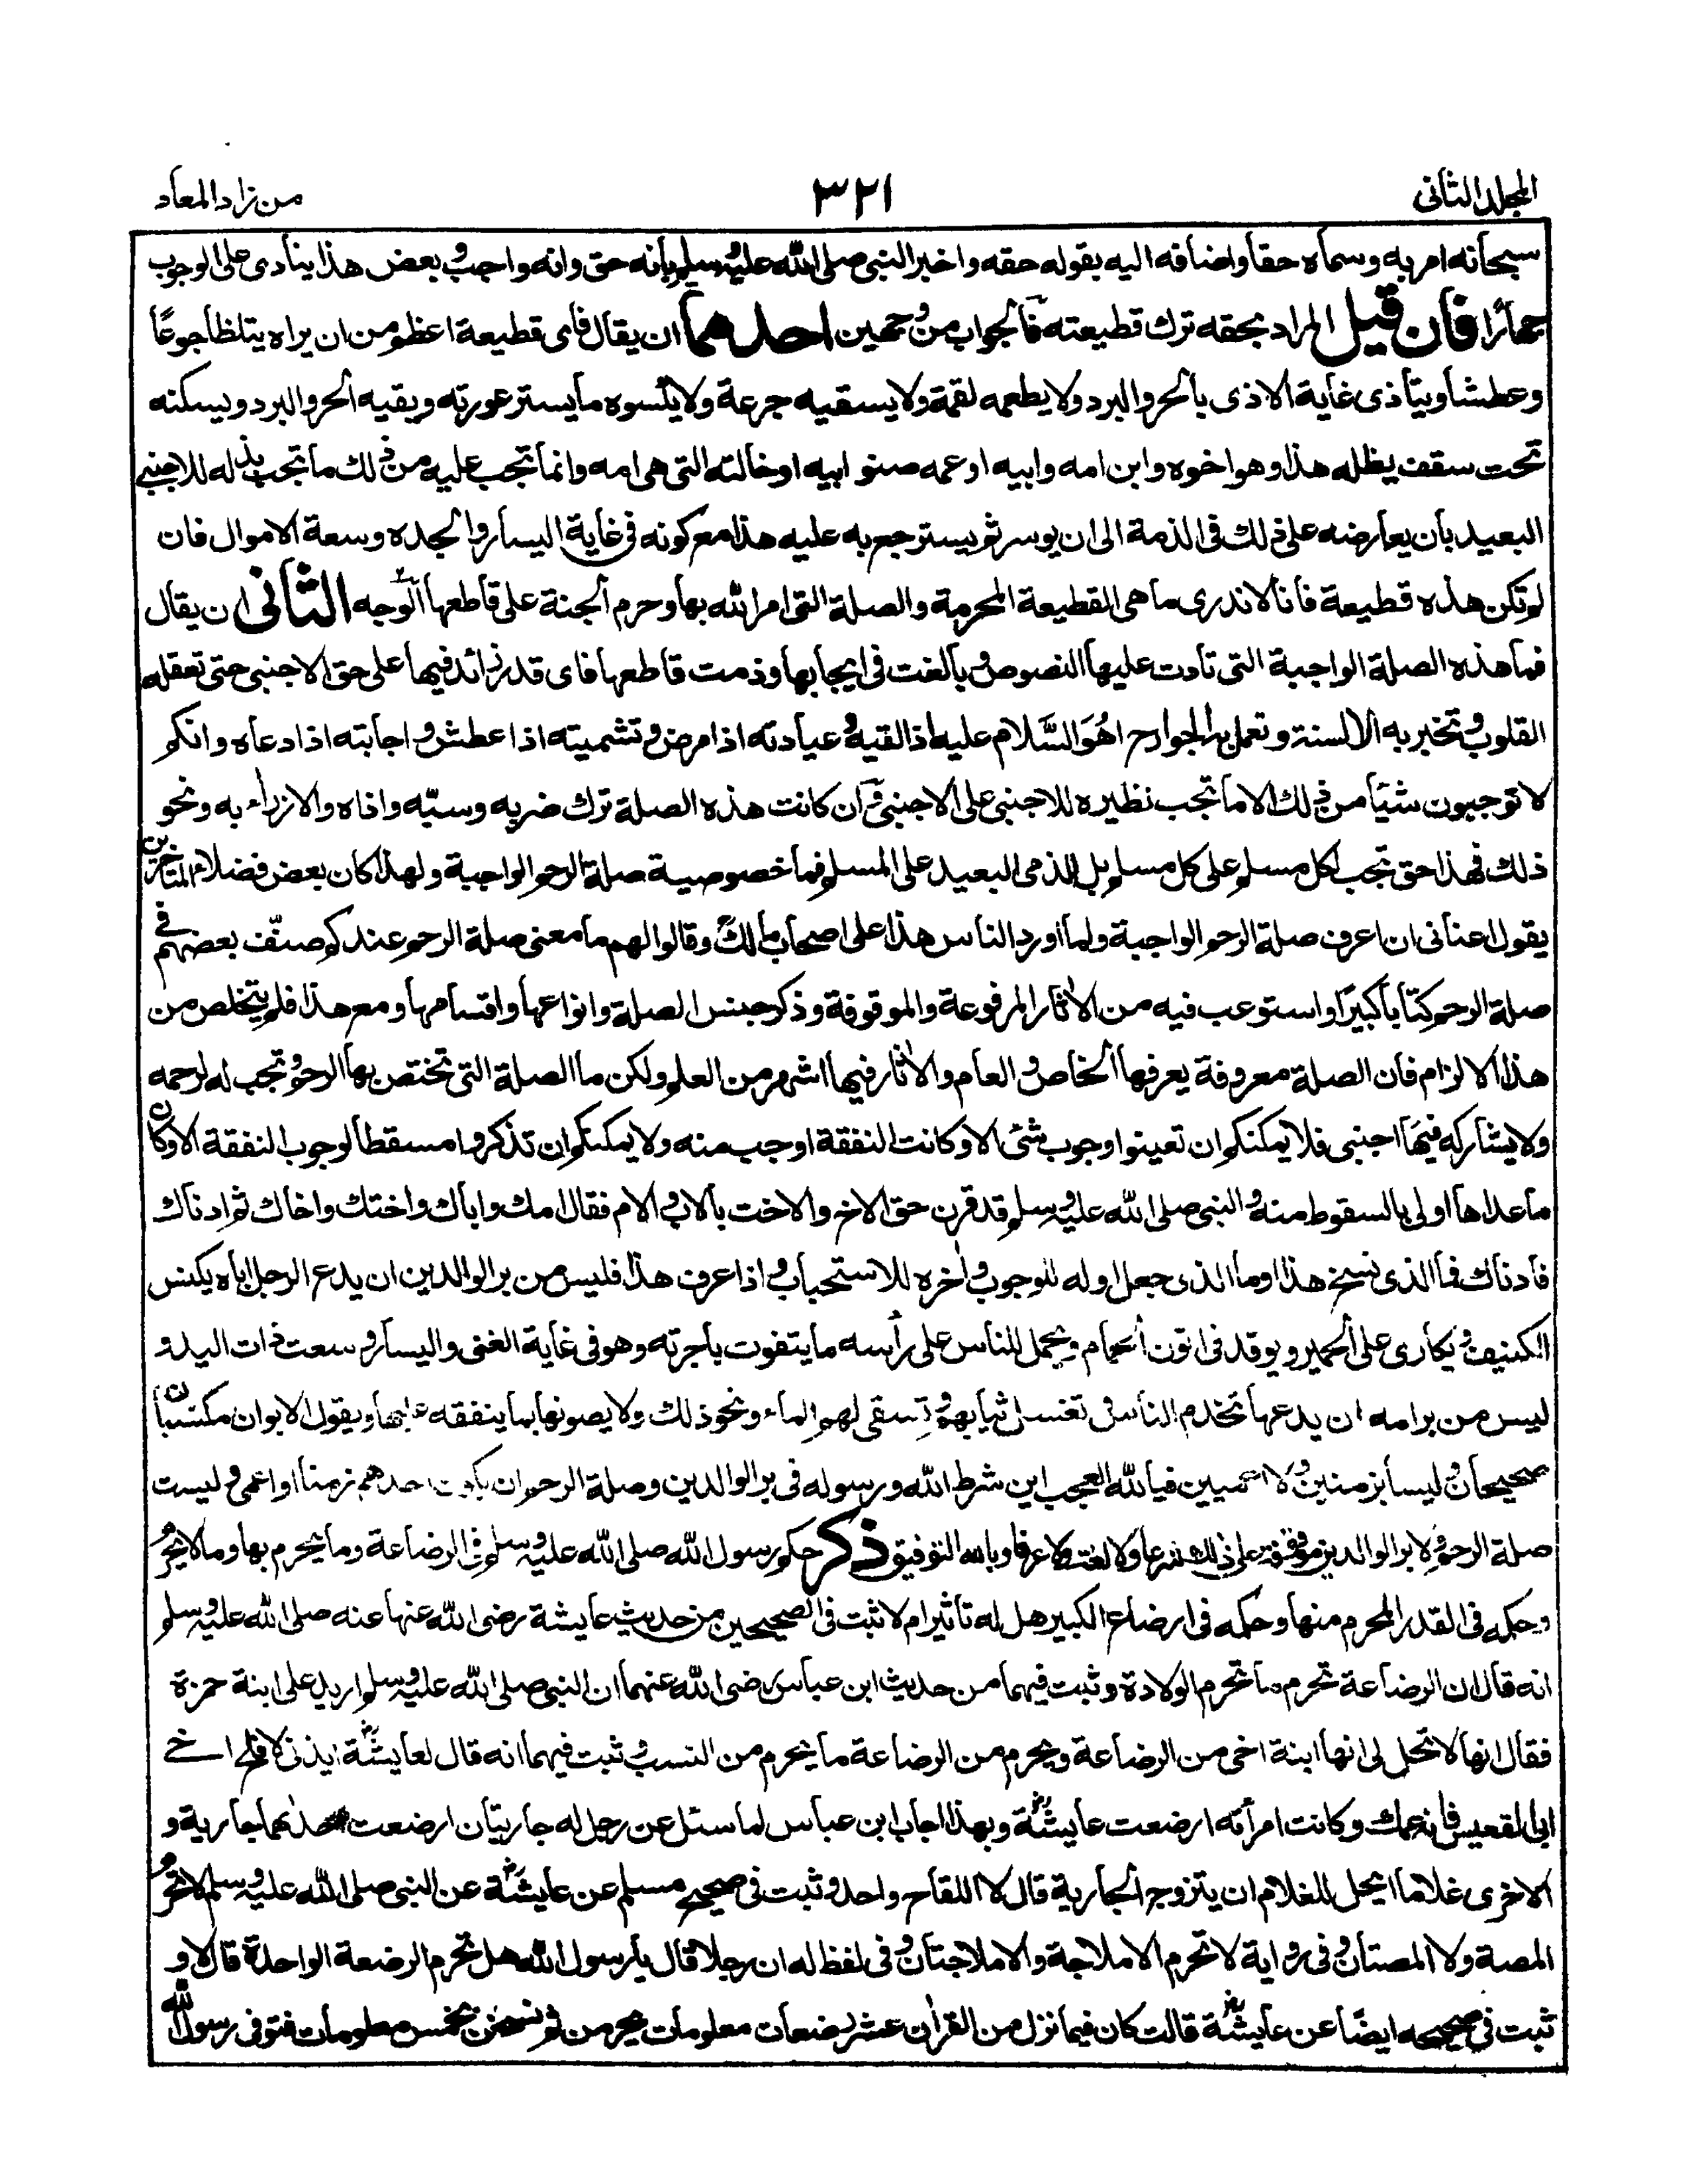 المجلد الثانى
٣٢١
من زاد المعاد
سبحانه امر به وسماه حقا واضافه اليه بقوله حقه واخبر النبى صلى الله عليه وسلم بانه حق وانه واجب وبعض هذا ينادى على الوجوب
جهارًا فان قيل المراد بحقه ترك قطيعته فالجواب من وجهين احدهما ان يقال فاى قطيعة اعظم من ان يراه يتلظا جوعًا
وعطشا ويتأذى غاية الاذى بالحر والبرد ولا يطعمه لقمة ولا يسقيه جرعة ولا يكسوه ما يستر عورته ويقيه الحر والبرد ويسكنه
تحت سقف يظله هذا وهو اخوه وابن امه وابيه او عمه صنو ابيه او خالته التى هى امه وانما تجب عليه من ذلك ما تجب بذله للاجنبى
البعيد بان يعارضه على ذلك فى الذمة الى ان يوسر ثم يسترجع به عليه هذا مع كونه فى غاية اليسار والجده وسعة الاموال فان
لم تكن هذه قطيعة فانا لا ندرى ما هى القطيعة المحرمة والصلة التى امر الله بها وحرم الجنة على قاطعها الوجه الثانى ان يقال
فما هذه الصلة الواجبة التى نادت عليها النصوص وبالغت فى ايجابها وذمت قاطعها فاى قدر زائد فيها على حق الاجنبى حتى تعقله
القلوب وتخبر به الالسنة وتعمل به الجوارح اهُوَ السَّلام عليه اذا لقيه وعيادته اذا مرض وتشميته اذا عطش واجابته اذا دعاه وانكم
لا توجبون شيئا من ذلك الا ما تجب نظيره للاجنبى على الاجنبى وان كانت هذه الصلة ترك ضربه وسبّه واذاه والازراء به ونحو
ذلك فهذا حق تجب لكل مسلم على كل مسلم بل للذمى البعيد على المسلم فما خصوصية صلة الرحم الواجبة ولهذا كان بعض فضلاء المتاخرين
يقول اعنانى ان اعرف صلة الرحم الواجبة ولما اورد الناس هذا على اصحاب مالك وقالوا لهم ما معنى صلة الرحم عندكم صنّف بعضهم فى
صلة الرحم كتابا كبيرًا واستوعب فيه من الآثار المرفوعة والموقوفة وذكر جنس الصلة وانواعها واقسامها ومع هذا فلم يتخلص من
هذا الالزام فان الصلة معروفة يعرفها الخاص والعام والآثار فيها اشهر من العلم ولكن ما الصلة التى تختص بها الرحم وتجب له لرحمه
ولا يشاركه فيها اجنبى فلا يمكنكم ان تعينوا وجوب شئ الا وكانت النفقة اوجب منه ولا يمكنكم ان تذكروا مسقطا لوجوب النفقة الا وكان
ما عداها اولى بالسقوط منه والنبى صلى الله عليه وسلم قد قرن حق الاخ والاخت بالاب والام فقال امك واباك واختك واخاك ثم ادناك
فادناك فما الذى نسخ هذا وما الذى جعل اوله للوجوب وآخره للاستحباب واذا عرف هذا فليس من بر الوالدين ان يدع الرجل اباه يكنس
الكنيف ويكارى على الحمير ويوقد فى اتون الحمام ويحمل للناس على راسه ما يتقوت باجرته وهو فى غاية الغنى واليسار وسعت ذات اليد و
ليس من بر امه ان يدعها تخدم الناس تغسل ثيابهم وتسقى لهم الماء ونحو ذلك ولا يصونها بما ينفقه عليها ويقول الابوان مكتسبان
صحيحان وليسا بزمنين ولا اعميين فيا لله العجب اين شرط الله ورسوله فى بر الوالدين وصلة الرحم ان يكون احدهم زمنا او اعمى وليست
صلة الرحم ولا بر الوالدين موقوفة على ذلك شرعا ولا لغة ولا عرفا وبالله التوفيق ذكر حكم رسول الله صلى الله عليه وسلم فى الرضاعة وما يحرم بها وما لا يحرم
وحكمه فى القدر المحرم منها وحكمه فى ارضاع الكبير هل له تاثير ام لا ثبت فى الصحيحين من حديث عايشة رضى الله عنها عنه صلى الله عليه وسلم
انه قال ان الرضاعة تحرم ما تحرم الولادة وثبت فيهما من حديث ابن عباس رضى الله عنهما ان النبى صلى الله عليه وسلم اريد على ابنة حمزة
فقال انها لا تحل لى انها ابنة اخى من الرضاعة ويحرم من الرضاعة ما يحرم من النسب وثبت فيهما انه قال لعايشة ايذنى لافلح اخى
ابى القعيس فانه عمك وكانت امرأته ارضعت عايشة وبهذا اجاب ابن عباس لما سئل عن رجل له جاريتان ارضعت احداهما جارية و
الاخرى غلاما ايحل للغلام ان يتزوج الجارية قال لا اللقاح واحد وثبت فى صحيح مسلم عن عايشة عن النبى صلى الله عليه وسلم لا تحرم
المصة ولا المصتان وفى رواية لا تحرم الاملاجة والاملاجتان وفى لفظ له ان رجلا قال يا رسول الله هل تحرم الرضعة الواحدة قال لا و
ثبت فى صحيحه ايضًا عن عايشة قالت كان فيما نزل من القرآن عشر رضعات معلومات يحرمن ثم نسخن بخمس معلومات فتوفى رسول الله